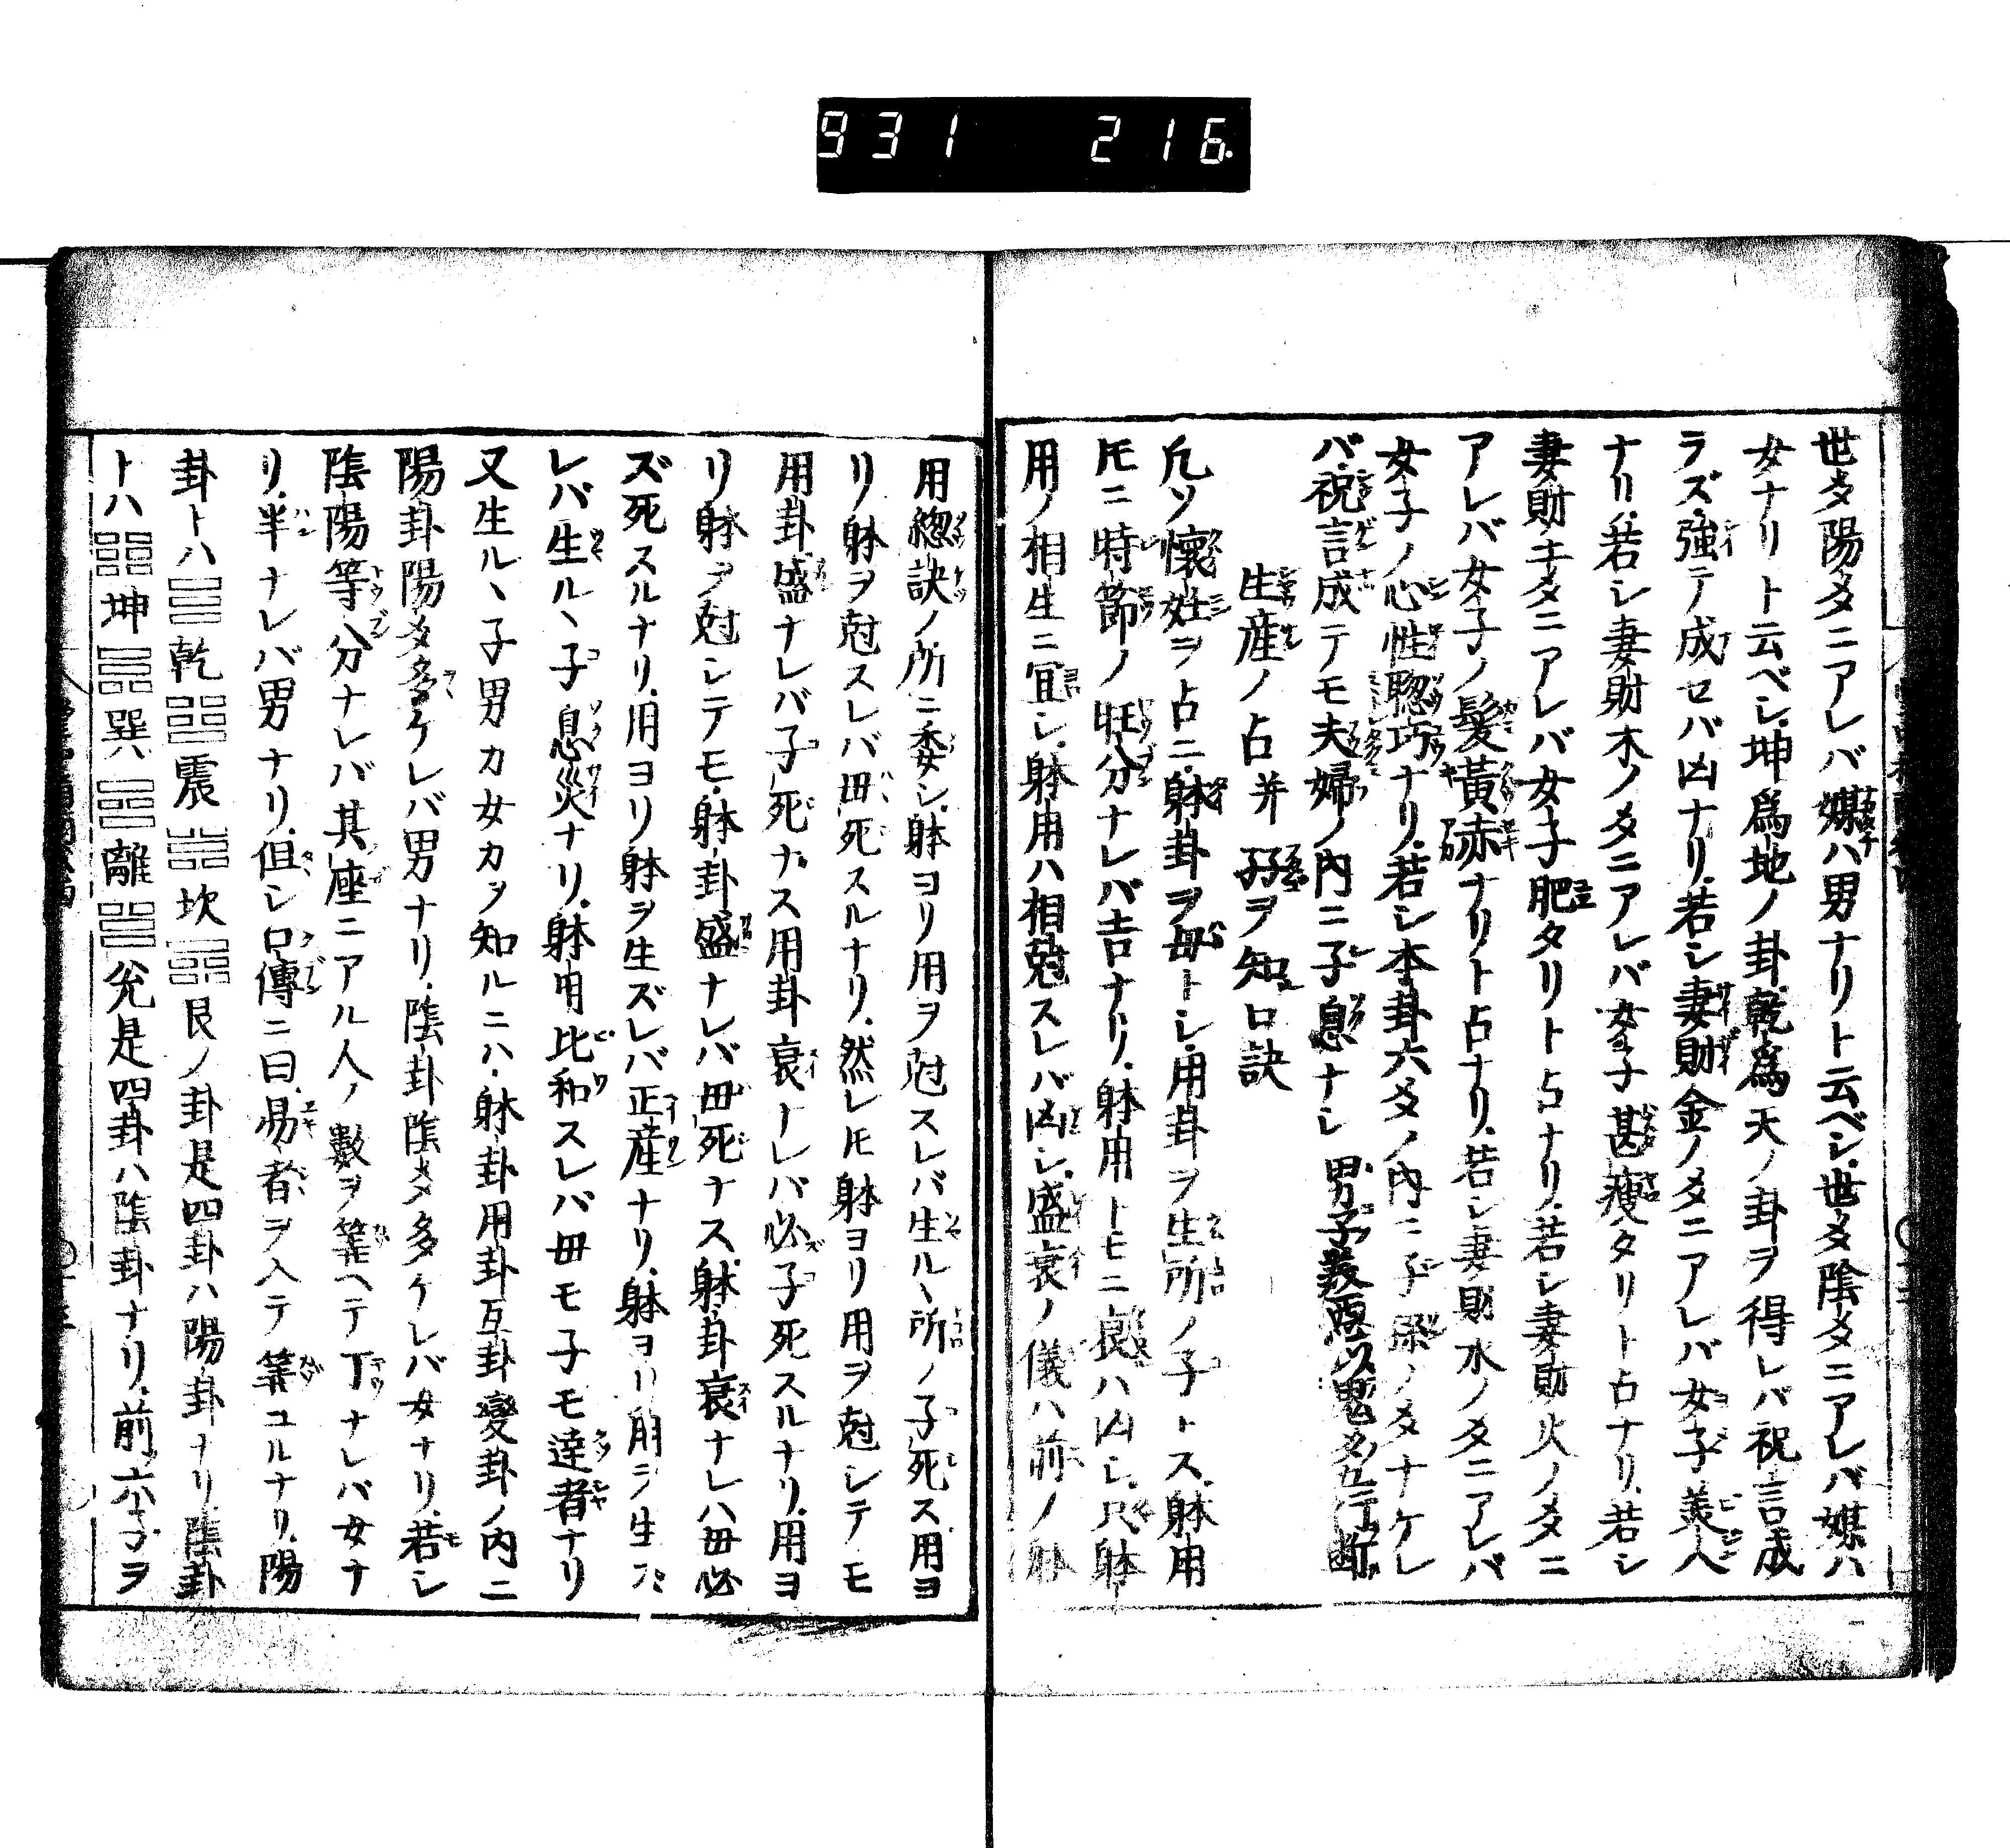 931 216
世爻陽爻ニアレバ媒ハ男ナリト云ベシ世爻陰爻ニアレバ媒ハ
女ナリト云ベシ坤爲地ノ卦乾爲天ノ卦ヲ得レバ祝言成
ラズ強テ成セバ凶ナリ若シ妻財金ノ爻ニアレバ女子美人
ナリ若シ妻財木ノ爻ニアレバ女子甚瘦タリト占ナリ若シ
妻財キ爻ニアレバ女子肥タリト占ナリ若シ妻財火ノ爻ニ
アレバ女子ノ髮黃赤ナリト占ナリ若シ妻財水ノ爻ニアレバ
女子ノ心性聰巧ナリ若シ本卦六爻ノ內ニ子孫ノ爻ナケレ
バ祝言成テモ夫婦ノ內ニ子息ナシ男子善惡以鬼爻五行斷
生産ノ占并孕ヲ知口訣
凡ソ懷姙ヲ占ニ躰卦ヲ母トシ用卦ヲ生所ノ子トス躰用
𪜈ニ時節ノ旺分ナレバ吉ナリ躰用トモニ衰ハ凶シ只躰
用ノ相生ニ宜シ躰用ハ相尅スレバ凶シ盛衰ノ儀ハ前ノ躰
用總訣ノ所ニ委シ躰ヨリ用ヲ尅スレバ生ルヽ所ノ子死ス用ヨ
リ躰ヲ尅スレバ母死スルナリ然レ𪜈躰ヨリ用ヲ尅シテモ
用卦盛ナレバ子死ナス用卦衰ナレバ必子死スルナリ用ヨ
リ躰ヲ尅シテモ躰卦盛ナレバ母死ナス躰卦衰ナレハ母必
ズ死スルナリ用ヨリ躰ヲ生ズレバ正產ナリ躰ヨリ用ヲ生ズ
レバ生ルヽ子息災ナリ躰用比和スレバ母モ子モ達者ナリ
又生ルヽ子男カ女カヲ知ルニハ躰卦用卦互卦變卦ノ內ニ
陽卦陽爻多ケレバ男ナリ陰卦陰爻多ケレバ女ナリ若シ
陰陽等分ナレバ其座ニアル人ノ數ヲ筭ヘテ丁ナレバ女ナ
リ半ナレバ男ナリ但シ口傳ニ曰易者ヲ入テ筭ユルナリ陽
卦トハ☰乾☳震☵坎☶艮ノ卦是四卦ハ陽卦ナリ陰卦
トハ☷坤☴巽☲離☱兌是四卦ハ陰卦ナリ前六子ヲ